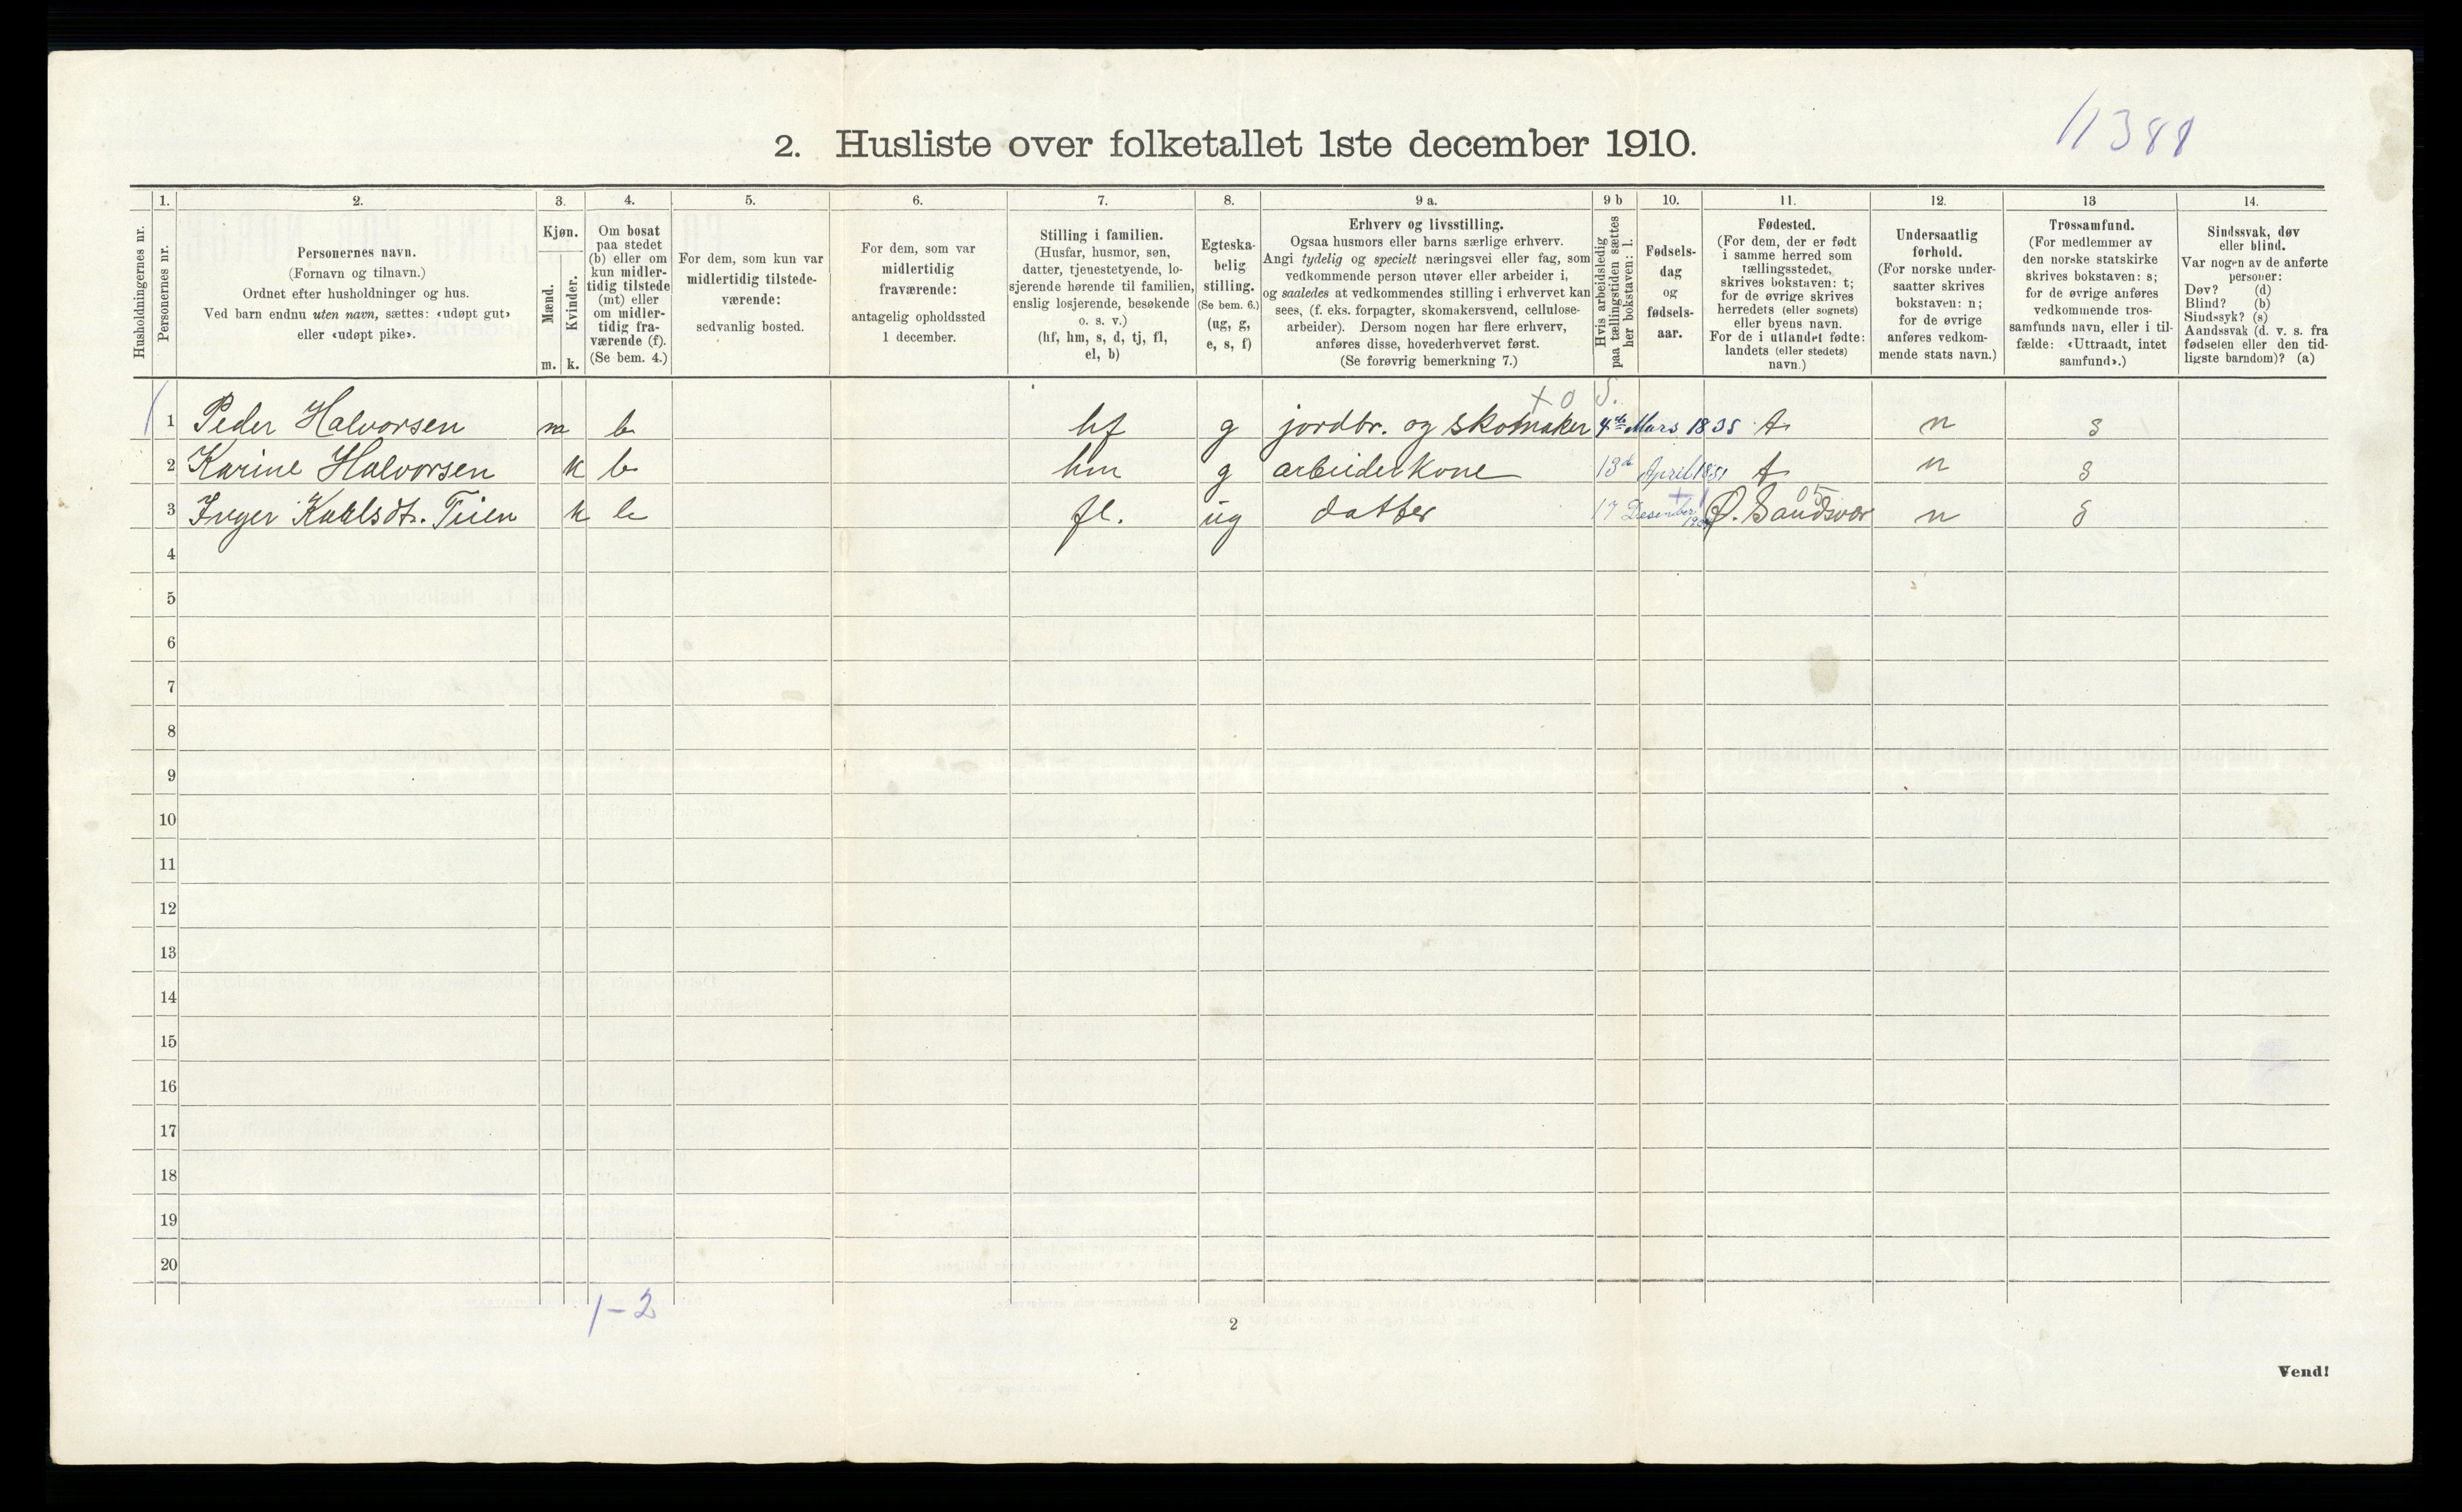 11381
2. Husliste over folketallet 1ste december 1910.
Husholdningernes nr.
1.
Personernes nr.
2.
Personernes navn.
(Fornavn og tilnavn.)
Ordnet efter husholdninger og hus.
Ved barn endnu uten navn, sættes: «udøpt gut»
eller «udøpt pike».
3.
Kjøn.
Mænd.
Kvinder.
m. k.
4.
Om bosat
paa stedet
(b) eller om
kun midler-
tidig tilstede
(mt) eller
om midler-
tidig fra-
værende (f).
(Se bem. 4.)
5.
For dem, som kun var
midlertidig tilstede-
værende:
sedvanlig bosted.
6.
For dem, som var
midlertidig
fraværende:
antagelig opholdssted
1 december.
7.
Stilling i familien.
(Husfar, husmor, søn,
datter, tjenestetyende, lo-
sjerende hørende til familien,
enslig losjerende, besøkende
o. s. v.)
(hf, hm, s, d, tj, fl,
el, b)
8.
Egteska-
belig
stilling.
(Se bem. 6.)
(ug, g,
e, s, f)
9 a.
Erhverv og livsstilling.
Ogsaa husmors eller barns særlige erhverv.
Angi tydelig og specielt næringsvei eller fag, som
vedkommende person utøver eller arbeider i,
og saaledes at vedkommendes stilling i erhvervet kan
sees, (f. eks. forpagter, skomakersvend, cellulose-
arbeider). Dersom nogen har flere erhverv,
anføres disse, hovederhvervet først.
(Se forøvrig bemerkning 7.)
9 b
Hvis arbeidsledig
paa tællingstiden sættes
her bokstaven: l.
10.
Fødsels-
dag
og
fødsels-
aar.
11.
Fødested.
(For dem, der er født
i samme herred som
tællingsstedet,
skrives bokstaven: t;
for de øvrige skrives
herredets (eller sognets)
eller byens navn.
For de i utlandet fødte:
landets (eller stedets)
navn.)
12.
Undersaatlig
forhold.
(For norske under-
saatter skrives
bokstaven: n;
for de øvrige
anføres vedkom-
mende stats navn.)
13
Trossamfund.
(For medlemmer av
den norske statskirke
skrives bokstaven: s;
for de øvrige anføres
vedkommende tros-
samfunds navn, eller i til-
fælde: «Uttraadt, intet
samfund».)
14.
Sindssvak, døv
eller blind.
Var nogen av de anførte
personer:
Døv? (d)
Blind? (b)
Sindssyk? (s)
Aandssvak (d. v. s. fra
fødselen eller den tid-
ligste barndom)? (a)
x 0 5.
1 Peder Halvorsen m b hf g jordbr. og skomaker 4de Mars 1835 t n s
2 Karine Halvorsen k b hm g arbeiderkone 13de April 1851 t n s
05
3 Inger Kahlsdt. Tien k b fl. ug datter 17 Desember Ø. Sandsvær n s
4
5
6
7
8
9
10
11
12
13
14
15
16
17
18
19
20
1-2
2
Vend!